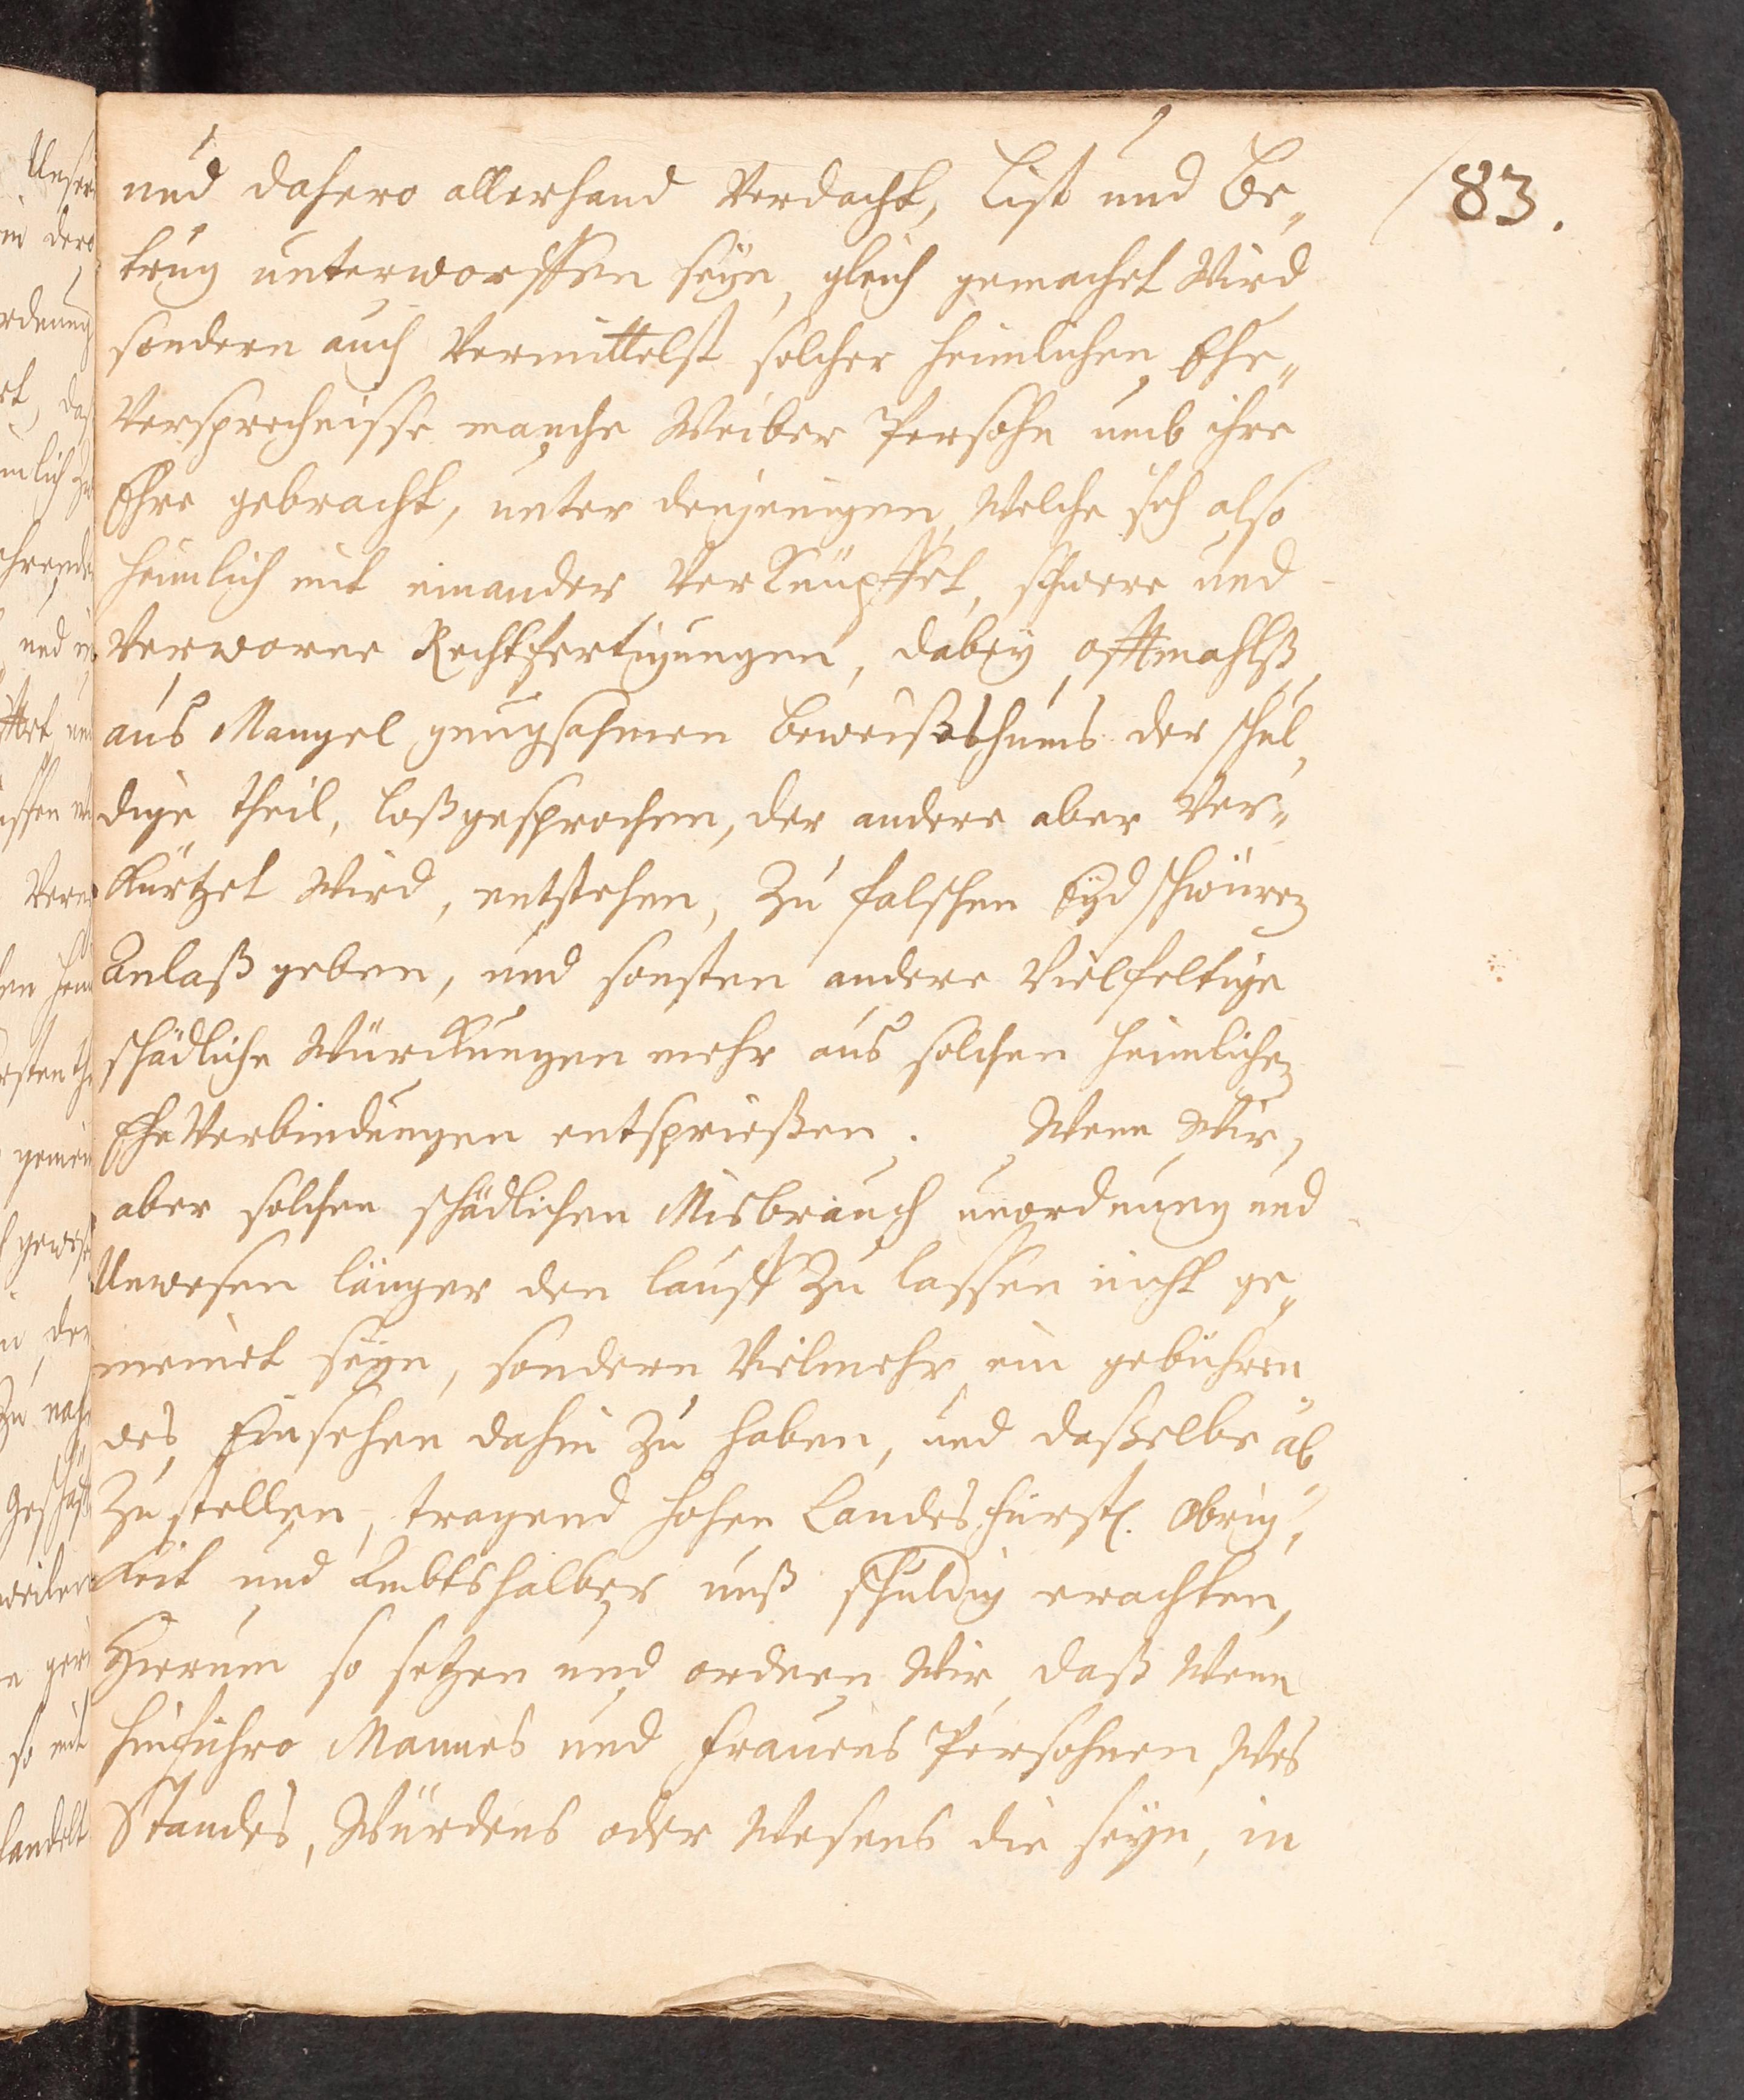 83.
und dahero allerhand Verdacht, List und Be„
trug unterworffen seÿn, gleich gemachet Wird
sondern auch Vermittelst solcher heimlichen Ehe„
Versprechnisse manche Weiber Persohn umb ihre
Ehre gebracht, unter denjenigen Welche sich also
heimlich mit einander VerKnüpffet, schwere und
Verworne Rechtfertigungen, dabeÿ offtmahlß
aus Mangel gnugsahmen beweißthums der schul„
dige theil, loßgesprochen, der andere aber Ver„
Kürtzet Wird, entstehen, Zu falschen Eÿdschwüren
Anlaß geben, und sonsten andere Vielfeltige
schädliche Würckungen mehr aus solchen heimlichen
EheVerbindungen entsprießen. Wenn Wir,
aber solchen schädlichen Misbrauch unordnung und
Unwesen länger den lauff Zu lassen nicht ge„
meinet seÿn, sondern Vielmehr ein gebühren„
des Einsehen dahin Zu haben, und daßelbe ab
Zustellen, tragend hohen Landesfürstl. Obrig„
Keit und Ambtshalber unß schuldig erachten,
Hierum so setzen und ordnen Wir, daß Wenn
hinführo Mannes und Frauens Persohnen, Wes
Standes, Würdens oder Wesens die seÿn, in